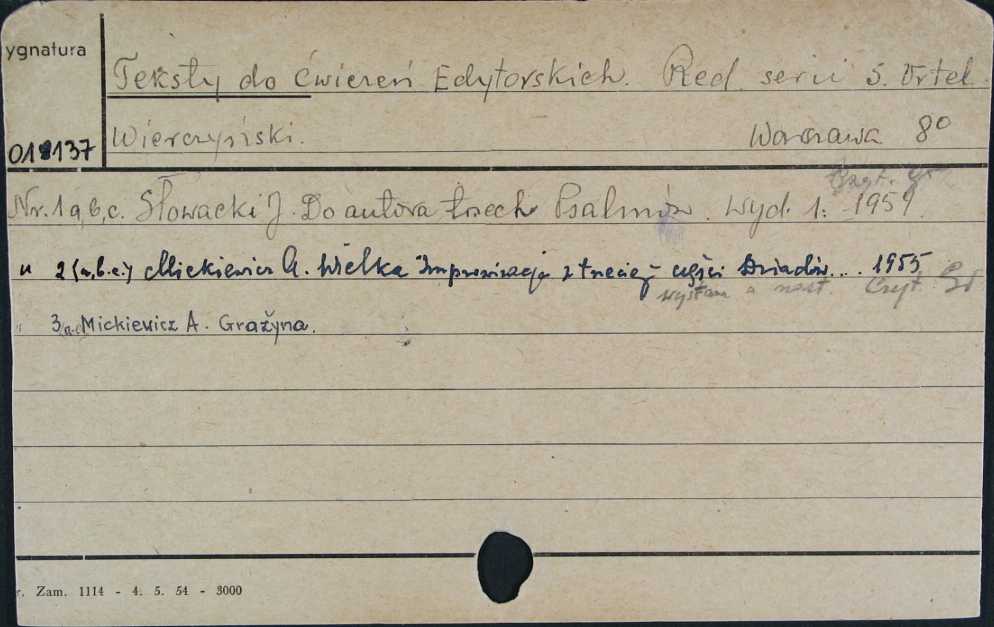 ygnatura
Teksty do ćwiczeń Edytorskich. Red. serii S. Vrtel
018137 Wierczyński. Warszawa 8°
Czyt. Gł
Nr. 1 a, b, c. Słowacki J. Do autora trzech Psalmów. Wyd. 1: 1951.
" 2 (a, b. c.) Mickiewicz A. Wielka Improwizacja z trzeciej części Dziadów... 1955
Czyt. Gł
3 a-c Mickiewicz A. Grażyna.
r. Zam. 1114 - 4. 5. 54 - 3000